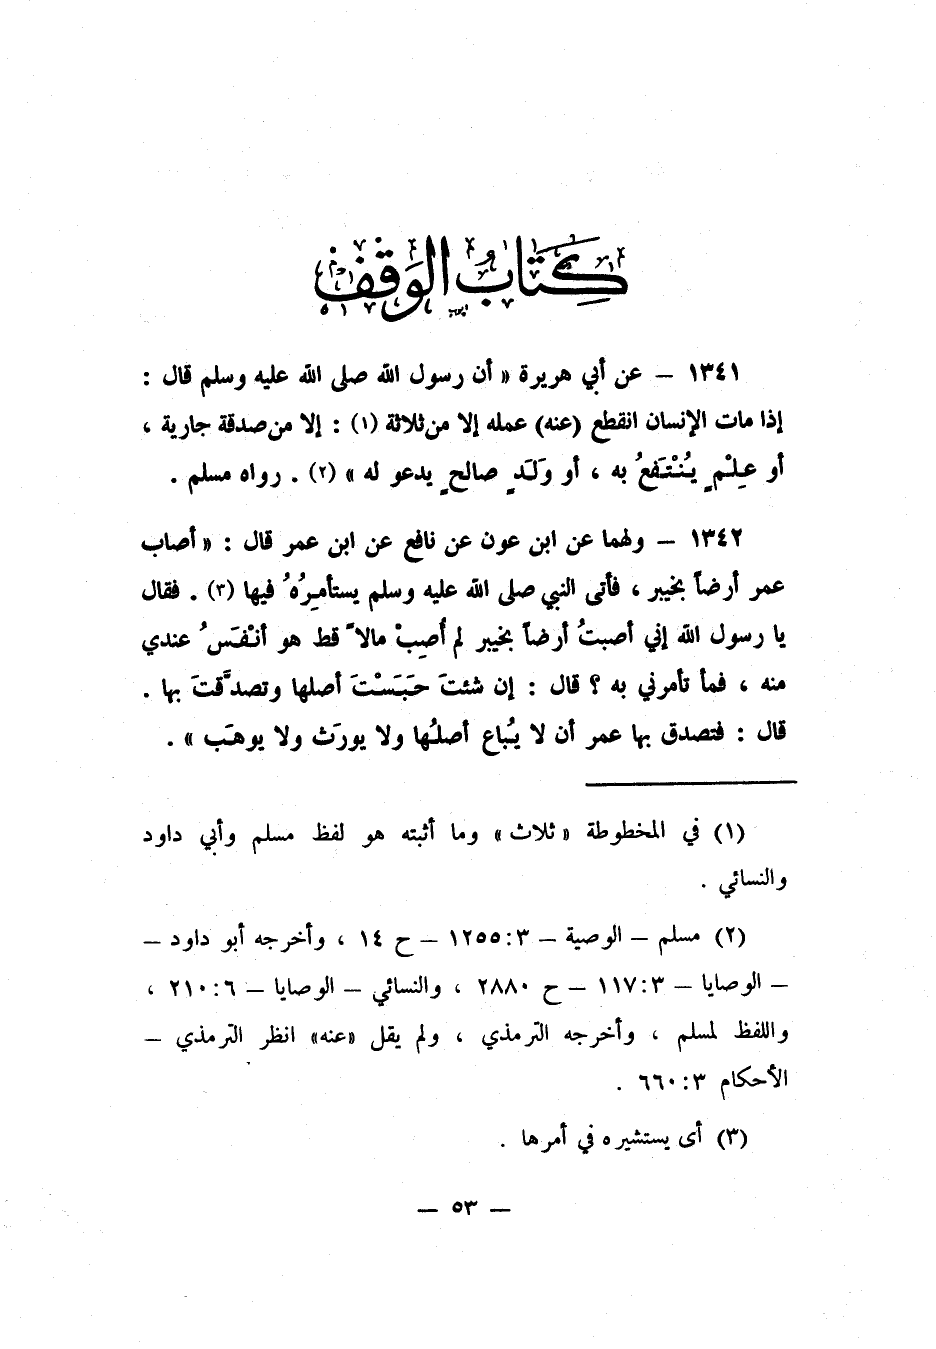 كتاب الوقف
١٣٤١ – عن أبي هريرة « أن رسول الله صلى الله عليه وسلم قال :
إذا مات الإنسان انقطع (عنه) عمله إلا من ثلاثة (١) : إلا من صدقة جارية ،
أو عِلْمٍ يُنْتَفعُ به ، أو وَلَدٍ صالحٍ يدعو له » (٢) . رواه مسلم .
١٣٤٢ – ولهما عن ابن عون عن نافع عن ابن عمر قال : « أصاب
عمر أرضاً بخيبر ، فأتى النبي صلى الله عليه وسلم يستأمِرُهُ فيها (٣) . فقال
يا رسول الله إني أصبتُ أرضاً بخيبر لم أُصِبْ مالاً قط هو أنْفَسُ عندي
منه ، فمأ تأمرني به ؟ قال : إن شئتَ حَبَسْتَ أصلها وتصدَّقتَ بها .
قال : فتصدق بها عمر أن لا يُباع أصلُها ولا يورَث ولا يوهَب » .
(١) في المخطوطة « ثلاث » وما أثبته هو لفظ مسلم وأبي داود
والنسائي .
(٢) مسلم – الوصية – ١٢٥٥:٣ – ح ١٤ ، وأخرجه أبو داود –
– الوصايا – ١١٧:٣ – ح ٢٨٨٠ ، والنسائي – الوصايا – ٢١٠:٦ ،
واللفظ لمسلم ، وأخرجه الترمذي ، ولم يقل «عنه» انظر الترمذي –
الأحكام ٦٦٠:٣ .
(٣) أى يستشيره في أمرها .
– ٥٣ –